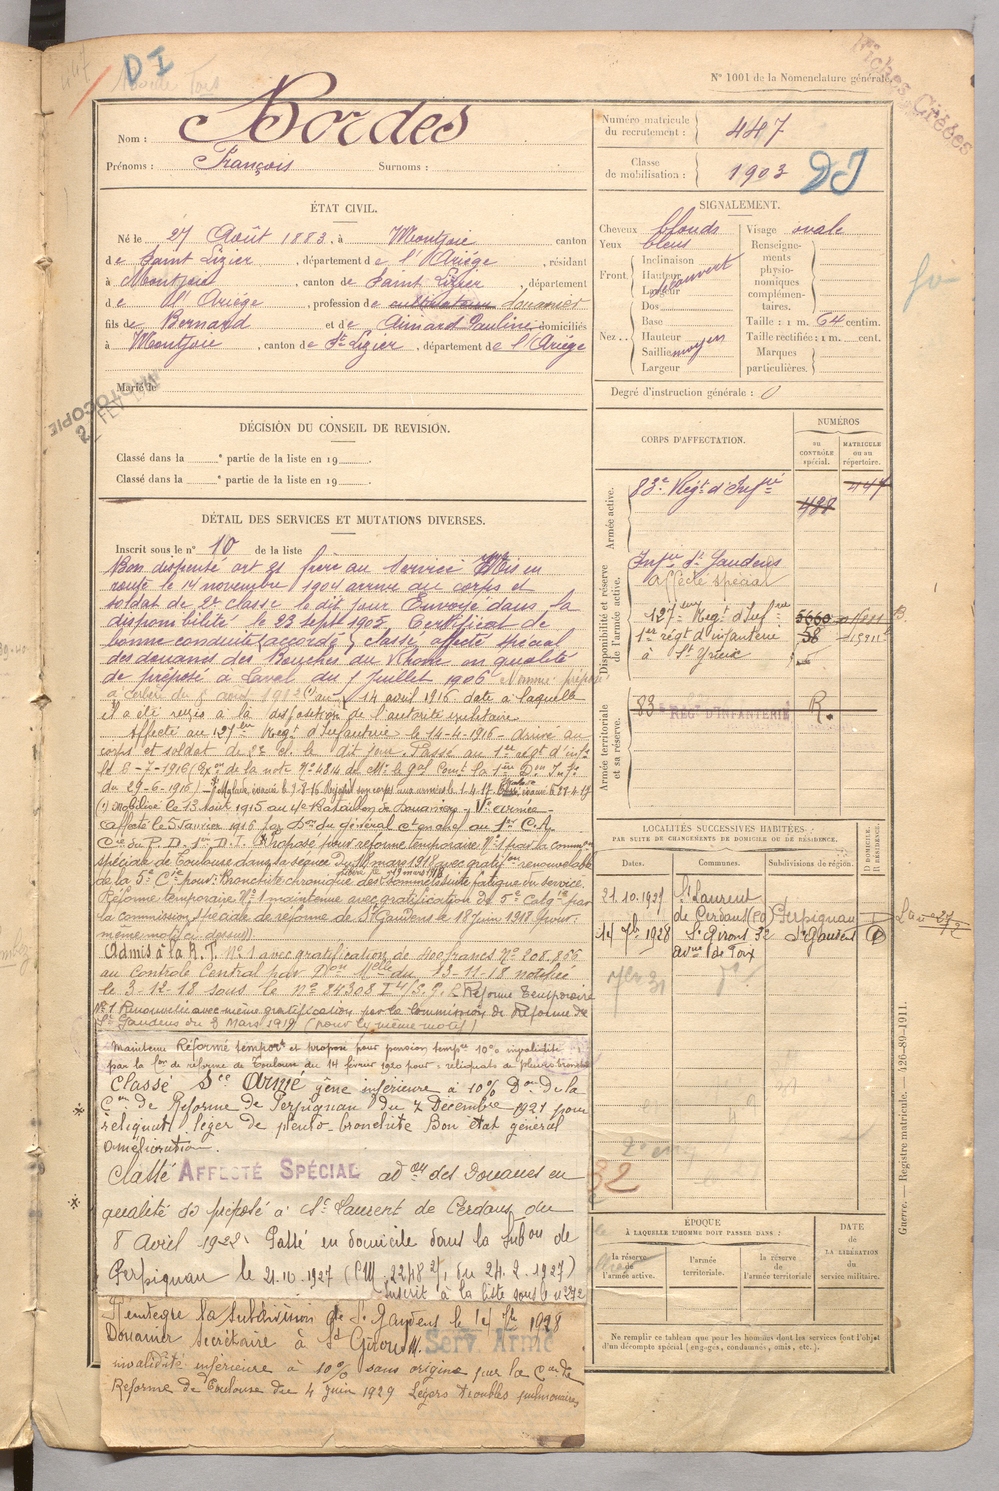 447
DI
N° 1001 de la Nomenclature générale.
Fiches Créées
Nom : Bordes
Prénoms : François Surnoms :
Numéro matricule du recrutement : 447
Classe de mobilisation : 1903
DI
ÉTAT CIVIL.
Né le 27 Août 1883, à Montjoie canton
de Saint Lizier, département de l'Ariège, résidant
à Montjoie, canton de Saint Lizier, département
de l'Ariège, profession de cultivateur Douanier
fils de Bernard et de Aimard Pauline domiciliés
à Montjoie, canton de St Lizier, département de l'Ariège
Marié le
PHOTOCOPIE
SIGNALEMENT.
Cheveux blonds
Yeux bleus
Front : Inclinaison
Hauteur découvert
Largeur
Nez : Dos
Base
Hauteur
Saillie moyen
Largeur
Visage ovale
Renseignements physionomiques complémentaires.
Taille : 1 m. 64 centim.
Taille rectifiée : 1 m. cent.
Marques particulières.
Degré d'instruction générale : 0
DÉCISION DU CONSEIL DE REVISION.
Classé dans la e partie de la liste en 19 .
Classé dans la e partie de la liste en 19 .
CORPS D'AFFECTATION.
NUMÉROS
au CONTRÔLE spécial.
MATRICULE ou au répertoire.
Armée active.
83e Régt d'Infrie
447
Disponibilité et réserve de l'armée active.
Infrie St Gaudens
affecté spécial
127eme Régt d'Infrie
1er régt d'infanterie 38
à St Yrieix
Armée territoriale et sa réserve.
83e RÉGT D'INFANTERIE R.
DÉTAIL DES SERVICES ET MUTATIONS DIVERSES.
Inscrit sous le n° 10 de la liste
Bon dispensé art 21 frère au service Mis en
route le 14 novembre 1904 arrivé au corps et
soldat de 2e classe le dit jour Envoyé dans la
disponibilité le 23 sept 1905. Certificat de
bonne conduite accordé classé affecté spécial
des douanes des Bouches du Rhône en qualité
de préposé à Laval du 1 Juillet 1906 Nommé préposé
14 avril 1916 date à laquelle
il a été remis à la disposition de l'autorité militaire
Affecté au 127eme Régt d'Infanterie le 14-4-1916 arrivé au
corps et soldat de 2e cl. le dit jour. Passé au 1er régt d'infie
le 6-7-1916 (Exon de la note N° 4814 de Mr le gal Comt la 1ère Don I. Ie
du 29-6-1916)
(1) Mobilisé le 13 août 1915 au 4e Bataillon de Douaniers Ve armée
affecté le 5 Janvier 1916 par Don du général Ct en chef au 1er C.A.
Proposé pour réforme temporaire N° 1 par la common
spéciale de Toulouse dans sa séance du mars 1918 avec gratifon renouvelable
de la 5e Cie pour : Bronchite chronique des sommets suite fatigue du service.
Réforme temporaire N° 1 maintenue avec gratification de 5e catgie par
la commission spéciale de réforme de St Gaudens le 18 Juin 1918 pour :
même motif ci-dessus.
Admis à la R.T. N° 1 avec gratification de 400 francs N° 208.866
au Controle Central par Don Melle du 13-11-18 notifiée
le 3-12-18 sous le n° 84308 Réforme Temporaire
N° 1 Renouvelée avec même gratification par la Commission de Réforme de
St Gaudens du 8 Mars 1919 (pour le même motif)
Maintenu Réformé tempore et proposé pour pension tempre 10% invalidité
par la Con de réforme de Toulouse du 14 février 1920 pour : reliquats de pleuro bronchite
Classé Sce Armé gêne inférieure à 10% Don de la
Con de Réforme de Perpignan du 7 Décembre 1921 pour
reliquat léger de pleuro-bronchite Bon état général
amélioration.
Classé AFFECTÉ SPÉCIAL adon des Douanes en
qualité de préposé à St Laurent de Cerdans du
8 Avril 1922. Passé en domicile dans la Subon de
Perpignan le 21.10.1927 (CM 2248 2/1 du 24.2.1927)
Inscrit à la liste sous le n° 272
Réintègre la subdivision de St Gaudens le 14 7bre 1928
Douanier Secrétaire à St Girons M. Serv. Armé
invalidité inférieure à 10% sans origine par la Con de
Réforme de Toulouse du 4 juin 1929 Légers troubles pulmonaires
LOCALITÉS SUCCESSIVES HABITÉES
PAR SUITE DE CHANGEMENTS DE DOMICILE OU DE RÉSIDENCE.
Dates. Communes. Subdivisions de région.
D DOMICILE. R RÉSIDENCE.
21.10.1927 St Laurent de Cerdans Perpignan
14 7bre 1928 St Girons 32 avue de Foix St Gaudens D
32
ÉPOQUE
À LAQUELLE L'HOMME DOIT PASSER DANS :
la réserve de l'armée active.
l'armée territoriale.
la réserve de l'armée territoriale
DATE DE LA LIBÉRATION du service militaire.
Ne remplir ce tableau que pour les hommes dont les services font l'objet d'un décompte spécial (engagés, condamnés, omis, etc.).
Guerre. — Registre matricule. — 426-89-1911.